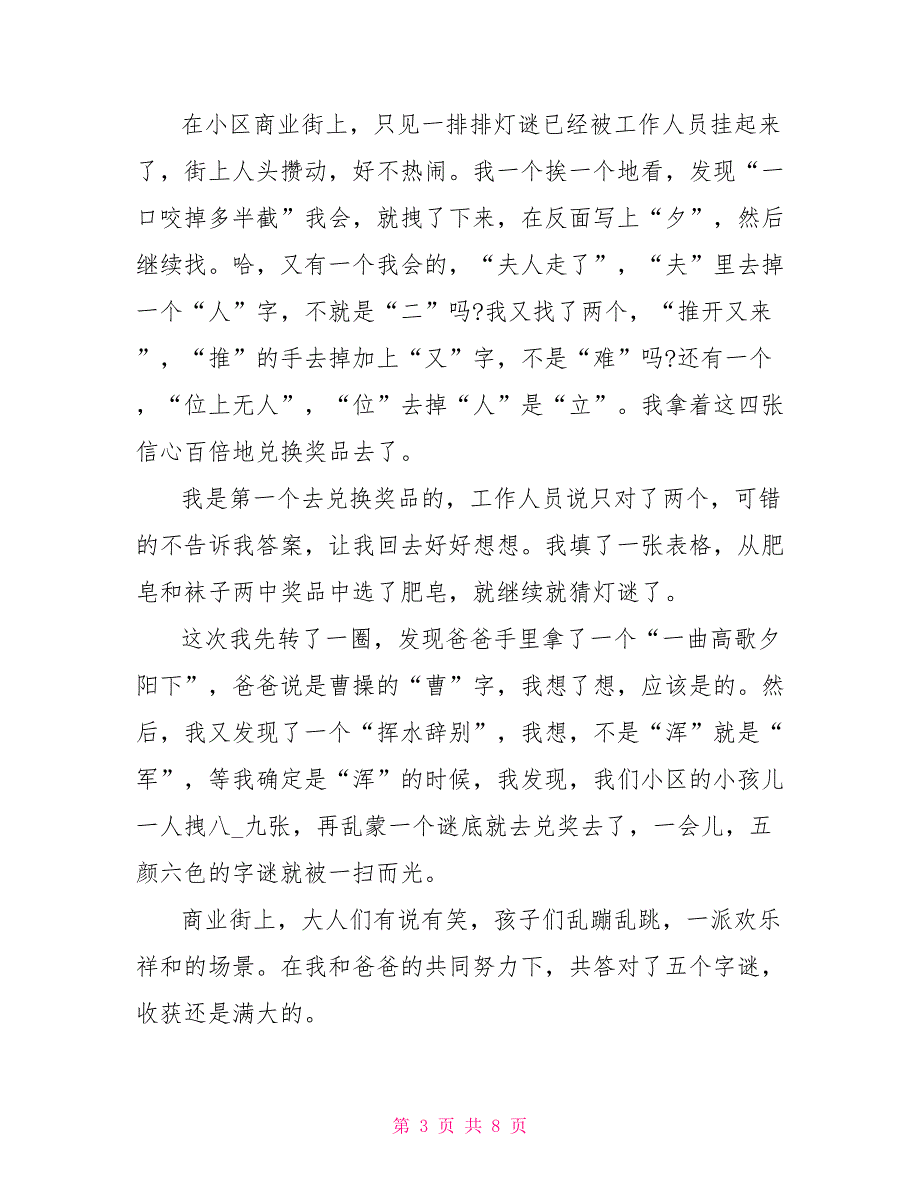 在小区商业街上，只见一排排灯谜已经被工作人员挂起来
了，街上人头攒动，好不热闹。我一个挨一个地看，发现“一
口咬掉多半截”我会，就拽了下来，在反面写上“夕”，然后
继续找。哈，又有一个我会的，“夫人走了”，“夫”里去掉
一个“人”字，不就是“二”吗?我又找了两个，“推开又来
”，“推”的手去掉加上“又”字，不是“难”吗?还有一个
，“位上无人”，“位”去掉“人”是“立”。我拿着这四张
信心百倍地兑换奖品去了。
我是第一个去兑换奖品的，工作人员说只对了两个，可错
的不告诉我答案，让我回去好好想想。我填了一张表格，从肥
皂和袜子两中奖品中选了肥皂，就继续就猜灯谜了。
这次我先转了一圈，发现爸爸手里拿了一个“一曲高歌夕
阳下”，爸爸说是曹操的“曹”字，我想了想，应该是的。然
后，我又发现了一个“挥水辞别”，我想，不是“浑”就是“
军”，等我确定是“浑”的时候，我发现，我们小区的小孩儿
一人拽八_九张，再乱蒙一个谜底就去兑奖去了，一会儿，五
颜六色的字谜就被一扫而光。
商业街上，大人们有说有笑，孩子们乱蹦乱跳，一派欢乐
祥和的场景。在我和爸爸的共同努力下，共答对了五个字谜，
收获还是满大的。
第 3 页 共 8 页